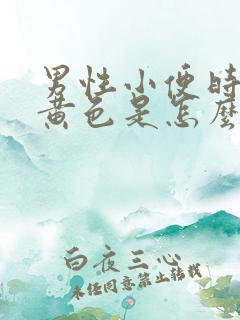 男性小便时
黄色是怎麼
白夜三心
未经同意禁止转载